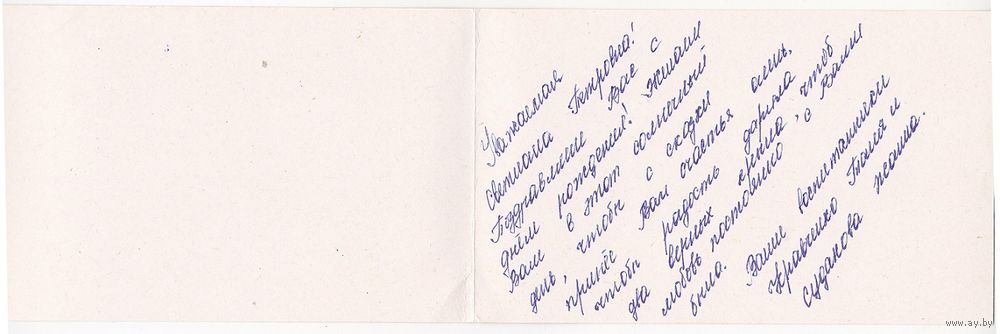 Уважаемая
Светлана Петровна!
Поздравляем Вас с
днём рождения! Желаем
Вам в этот солнечный
день, чтобы с сказки
принёс Вам счастья олень,
чтобы радость дарила
два верных крыла, чтоб
любовь постоянно с Вами
была.
Ваши воспитанники
Кравченко Таня и
Судакова Жанна.
www.ay.by